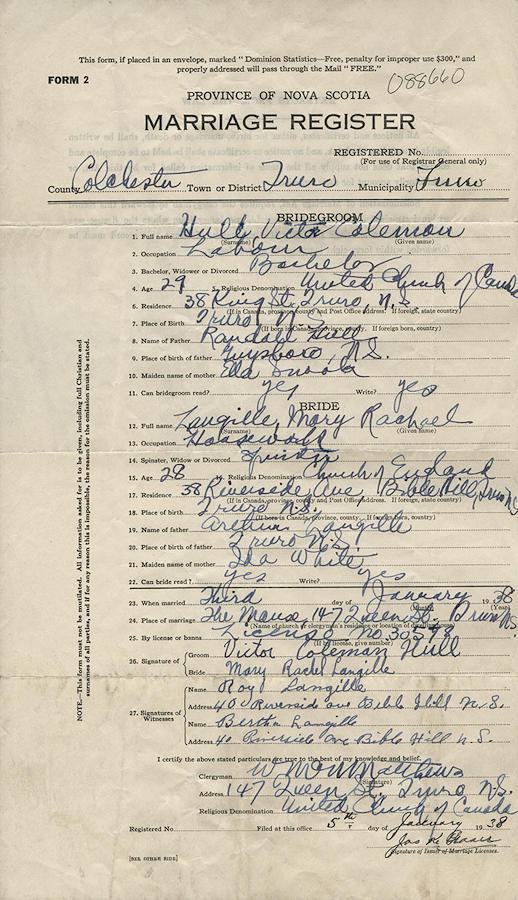 This form, if placed in an envelope, marked "Dominion Statistics—Free, penalty for improper use $300," and
properly addressed will pass through the Mail "FREE."
FORM 2
088660
PROVINCE OF NOVA SCOTIA
MARRIAGE REGISTER
REGISTERED No.
(For use of Registrar General only)
County Colchester Town or District Truro Municipality Truro
BRIDEGROOM
1. Full name Hull, Victor Coleman
(Surname) (Given name)
2. Occupation Labour
3. Bachelor, Widower or Divorced Bachelor
4. Age 29 5. Religious Denomination United Church of Canada
6. Residence 38 King St. Truro, N.S.
(If in Canada, province, county and Post Office address. If foreign, state country)
7. Place of Birth Truro N.S.
(If born in Canada, province, county. If foreign born, country)
8. Name of Father Randall Hull
9. Place of birth of father Guysboro, N.S.
10. Maiden name of mother Ella
11. Can bridegroom read? yes Write? yes
BRIDE
12. Full name Langille, Mary Rachael
(Surname) (Given name)
13. Occupation Housework
14. Spinster, Widow or Divorced Spinster
15. Age 28 16. Religious Denomination Church of England
17. Residence 38 Riverside Ave. Bible Hill, Truro N.S.
(If in Canada, province, county and Post Office address. If foreign, state country)
18. Place of birth Truro N.S.
(If born in Canada, province, county. If foreign born, country)
19. Name of father Arthur Langille
20. Place of birth of father Truro N.S.
21. Maiden name of mother Ida White
22. Can bride read? yes Write? yes
23. When married Third day of January 1938
(Month) (Year)
24. Place of marriage The Manse, 147 Queen St. Truro N.S.
(Name of church or clergyman's residence or location of dwelling house)
25. By license or banns License No. 30598
(If by license, give number)
26. Signature of Groom Victor Coleman Hull
Bride Mary Rachel Langille
27. Signatures of Witnesses
Name Roy Langille
Address 40 Riverside ave Bible Hill N.S.
Name Bertha Langille
Address 40 Riverside Ave Bible Hill N.S.
I certify the above stated particulars are true to the best of my knowledge and belief.
Clergyman Matthews
(Signature)
Address 147 Queen St. Truro N.S.
Religious Denomination United Church of Canada
Registered No. Filed at this office 5th day of January 1938
Signature of Issuer of Marriage Licenses.
[SEE OTHER SIDE]
NOTE.—This form must not be mutilated. All information asked for is to be given, including full Christian and
surnames of all parties, and if for any reason this is impossible, the reason for the omission must be stated.